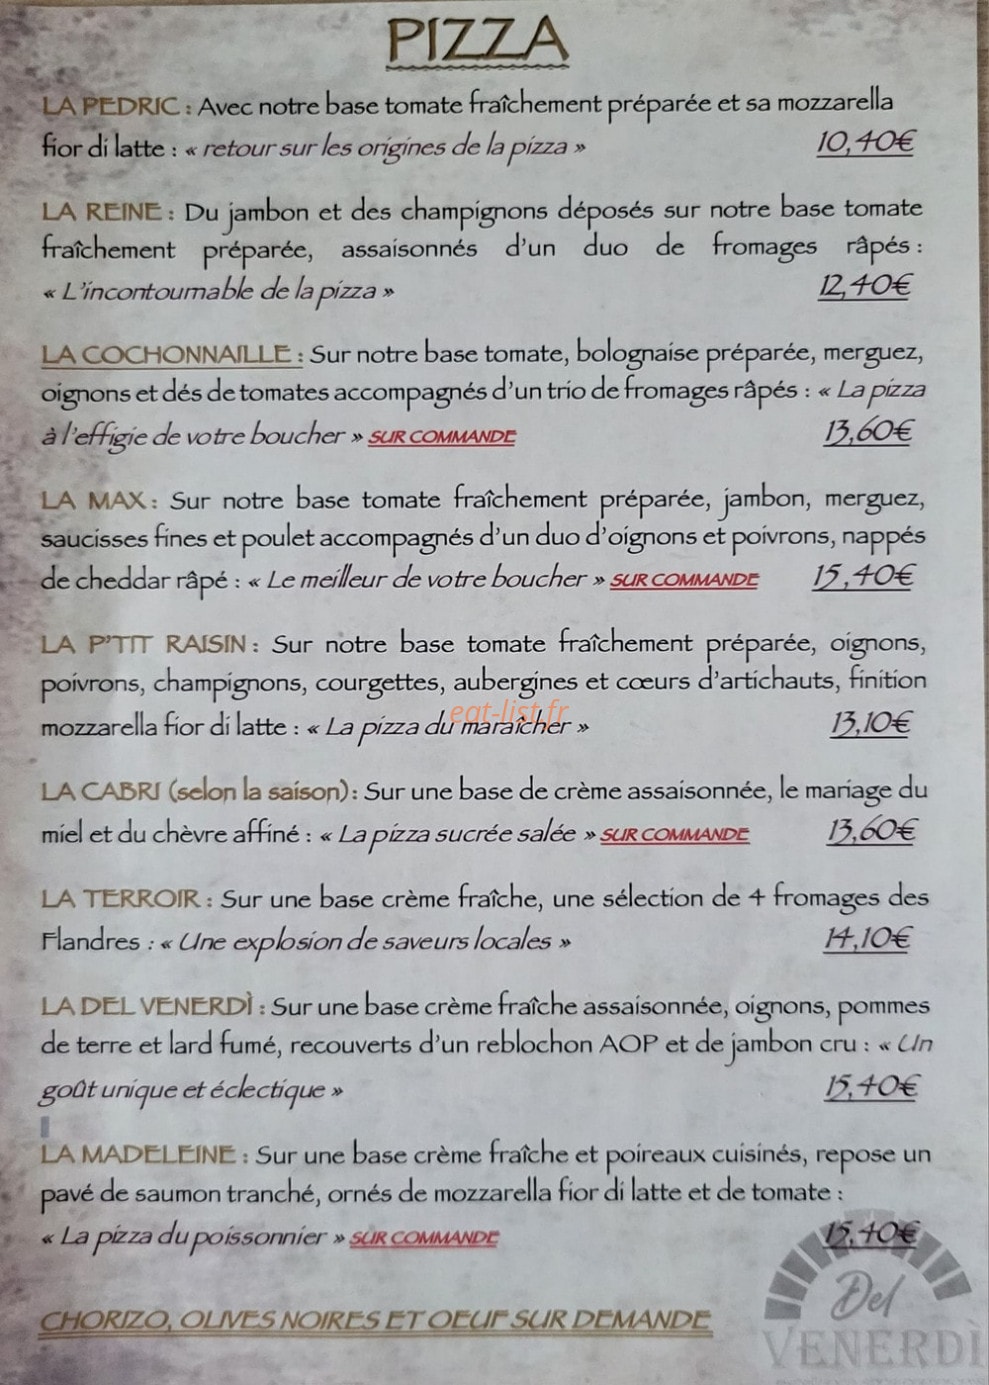 PIZZA
LA PEDRIC : Avec notre base tomate fraîchement préparée et sa mozzarella
fior di latte : « retour sur les origines de la pizza » 10,40€
LA REINE : Du jambon et des champignons déposés sur notre base tomate
fraîchement préparée, assaisonnés d'un duo de fromages râpés :
« L'incontournable de la pizza » 12,40€
LA COCHONNAILLE : Sur notre base tomate, bolognaise préparée, merguez,
oignons et dés de tomates accompagnés d'un trio de fromages râpés : « La pizza
à l'effigie de votre boucher » SUR COMMANDE 13,60€
LA MAX : Sur notre base tomate fraîchement préparée, jambon, merguez,
saucisses fines et poulet accompagnés d'un duo d'oignons et poivrons, nappés
de cheddar râpé : « Le meilleur de votre boucher » SUR COMMANDE 15,40€
LA P'TIT RAISIN : Sur notre base tomate fraîchement préparée, oignons,
poivrons, champignons, courgettes, aubergines et cœurs d'artichauts, finition
eat-list.fr
mozzarella fior di latte : « La pizza du maraîcher » 13,10€
LA CABRI (selon la saison) : Sur une base de crème assaisonnée, le mariage du
miel et du chèvre affiné : « La pizza sucrée salée » SUR COMMANDE 13,60€
LA TERROIR : Sur une base crème fraîche, une sélection de 4 fromages des
Flandres : « Une explosion de saveurs locales » 14,10€
LA DEL VENERDÌ : Sur une base crème fraîche assaisonnée, oignons, pommes
de terre et lard fumé, recouverts d'un reblochon AOP et de jambon cru : « Un
goût unique et éclectique » 15,40€
LA MADELEINE : Sur une base crème fraîche et poireaux cuisinés, repose un
pavé de saumon tranché, ornés de mozzarella fior di latte et de tomate :
« La pizza du poissonnier » SUR COMMANDE 15,40€
CHORIZO, OLIVES NOIRES ET OEUF SUR DEMANDE
Del
VENERDÌ